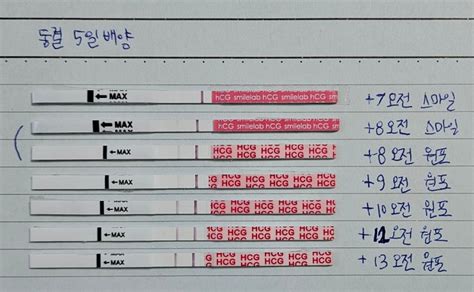 동결 5일배양
MAX hCG smilelab hCG smilelab hCG sm +7오전 스마일
MAX hCG smilelab hCG smilelab hCG sm +8오전 스마일
MAX HCG HCG HCG HCG HCG +8오전 원포
MAX HCG HCG HCG HCG HCG +9오전 원포
MAX HCG HCG HCG HCG HCG +10오전 원포
MAX HCG HCG HCG HCG HCG +12오전 원포
MAX HCG HCG HCG HCG HCG +13오전 원포